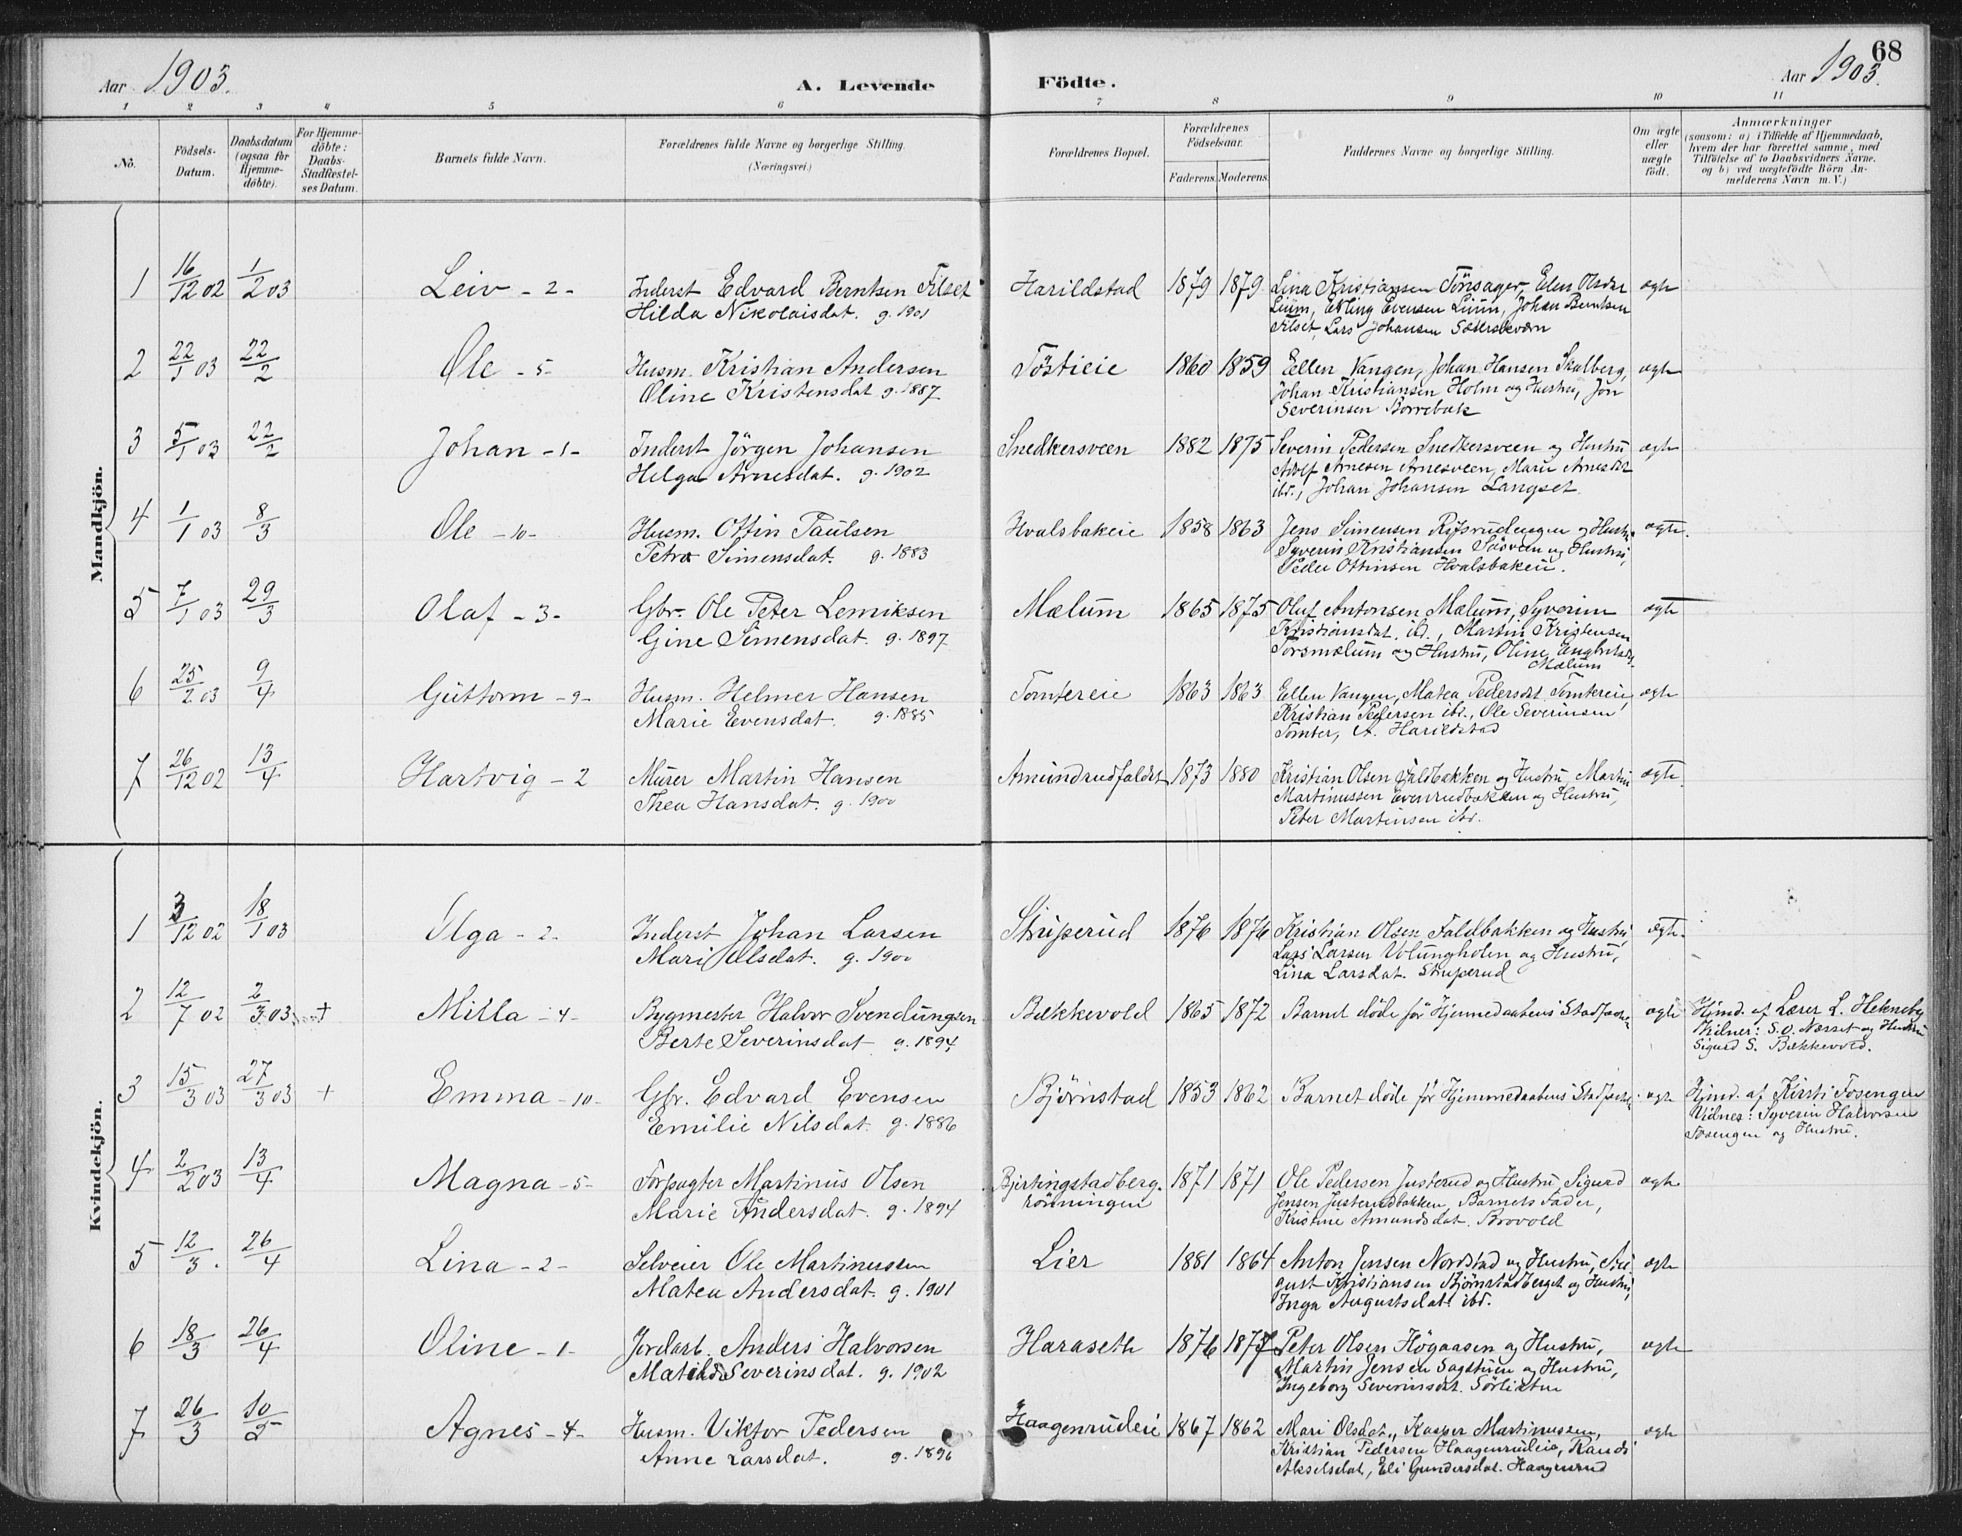 68
Aar 1903.
A. Levende Födte.
Aar 1903.
1 2 3 4 5 6 7 8 9 10 11
No.
Födsels-Datum.
Daabsdatum (ogsaa for Hjemme-döbte).
For Hjemme-döbte: Daabs-Stadfæstel-ses Datum.
Barnets fulde Navn.
Forældrenes fulde Navne og borgerlige Stilling.
(Næringsvei.)
Forældrenes Bopæl.
Forældrenes Födselsaar.
Faderens. Moderens.
Faddernes Navne og borgerlige Stilling.
Om ægte eller uægte födt.
Anmærkninger
(saasom: a) i Tilfælde af Hjemmedaab,
hvem der har forrettet samme, med
Tilföielse af to Daabsvidners Navne.
og b) ved uægtefödte Börn An-
melderens Navn m. V.)
Mandkjön.
1 16/12 02 1/2 03 Leiv - 2 - Inderst Edvard Berntsen Filset Harildstad 1879 1879 Lina Kristianssen Tönsager, Elen Olsdat ægte
Hilda Nikolaisdat. g. 1901 Lium, Erling Evensen Lium, Johan Berntsen
Filset, Lars Johansen Sæterskvern
2 22/1 03 22/2 Ole - 5 - Husm. Kristian Andersen Töstieie 1860 1859 Eellen Vangen, Johan Hansen Skalberg, ægte
Oline Kristensdat g. 1887 Johan Kristiansen Holm og Hustru, Jon
Severinsen Borrebæk
3 5/1 03 22/2 Johan - 1 - Inderst Jörgen Johansen Snedkersveen 1882 1875 Severin Pedersen Snedkersveen og Hustru ægte
Helga Arnesdat. g. 1902 Adolf Arnesen Arnesveen, Marie Arnesdat
ibd., Johan Johansen Langset
4 1/1 03 8/3 Ole - 10 - Husm. Ottin Paulsen Hvalsbakeie 1858 1863 Jens Simensen og Hustru ægte.
Petra Simensdat. g. 1883 Syverin Kristiansen og Hustru,
Peder Ottinsen Hvalsbakeie.
5 7/1 03 29/3 Olaf - 3 - Gbr. Ole Peter Lemiksen Mælum 1865 1875 Oluf Antonsen Mælum, Syverine ægte
Gine Simensdat g. 1897 Kristiansdat. ibd., Martin Kristensen
Torsmælum og Hustru, Oline Engbretsdt.
Mælum
6 25/2 03 9/4 Guttorm - 9 - Husm. Helmer Hansen Tomtereie 1863 1863 Eellen Vangen, Matea Pedersdat Tomtereie, ægte
Marie Evensdat. g. 1885 Kristian Pedersen ibd., Ole Severinsen
Tomter, A. Harildstad
7 26/12 02 13/4 Hartvig - 2 Murer Martin Hansen Amundrudfaldet 1873 1880 Kristian Olsen Faldbakken og Hustru, Martin ægte.
Thea Hansdat. g. 1900 Martinussen Evenrudbakken og Hustru,
Peter Martinsen ibd.
Kvindekjön.
1 3/12 02 18/1 03 Olga - 2 - Inderst Johan Larsen Struperud 1876 1876 Kristian Olsen Faldbakken og Hustru, ægte.
Mari Olsdat. g. 1900 Lars Larsen Volungholen og Hustru,
Lina Larsdat. Struperud
2 12/7 02 2/3 03 + Milla - 4 - Bygmester Halvor Svendungsen Bækkevold 1865 1872 Barnet döde för Hjemmedaabens Stadfæste- ægte Hjmd. af Lærer L. Hekneby
Berte Severinsdat g. 1894 Vidner: S. O. Næsset og Hustru
Sigurd S. Bækkevold.
3 15/3 03 27/3 03 + Emma - 10 - Gbr. Edvard Evensen Björnstad 1853 1862 Barnet döde för Hjemmedaabens Stadfæste- ægte Hjmd. af Kirsti Fosengen
Emilie Nilsdat. g. 1886 Vidner: Syverin Halvorsen
Fosengen og Hustru.
4 2/2 03 13/4 Magna - 5 - Forpagter Martinus Olsen Bjertingstadberg- 1871 1871 Ole Pedersen Justerud og Hustru, Sigurd ægte
Marie Andersdat. g. 1894 rönningen Jensen Justerudbakken, Barnets Fader,
Kristine Amundsdat. Brovold
5 12/3. 26/4 Lina - 2 - Selveier Ole Martinussen Lier 1881 1864 Anton Jensen Nordstad og Hustru, Au- ægte
Matea Andersdat. g. 1901 gust Kristiansen Björnstadberget og Hustru,
Inga Augustsdat. ibd.
6 18/3 26/4 Oline - 1 - Jordarb. Anders Halvorsen Haraseth 1876 1877 Peter Olsen Högaasen og Hustru, ægte
Matilde Severinsdat. g. 1902 Martin Jensen Sagstuen og Hustru,
Ingeborg Severinsdat. Sörlistuen
7 26/3 10/5 Agnes - 4 - Husm. Viktor Pedersen Haagenrudeie 1867 1862 Mari Olsdat., Kasper Martinussen, ægte
Anne Larsdat. g. 1896 Kristian Pedersen Haagenrudeie, Randi
Akselsdat, Eli Gundersdat. Haagenrud